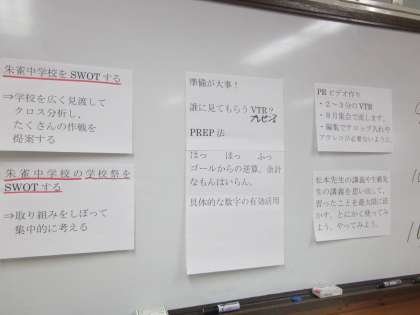 朱雀中学校を SWOT する
⇒学校を広く見渡して
クロス分析し、
たくさんの作戦を
提案する
朱雀中学校の学校祭を
SWOT する
⇒取り組みをしぼって
集中的に考える
準備が大事！
誰に見てもらう VTR？
プレゼン？
PREP 法
ほっ ほっ ふっ
ゴールからの逆算。余計
なもんはいらん。
具体的な数字の有効活用
PR ビデオ作り
・2～3分の VTR
・8月集会で流します。
・編集でテロップ入れや
アテレコが必要ないように。
松本先生の講義や
先生の講義を思い出して、
習ったことを最大限に活
かす。とにかく使ってみ
よう。やってみよう。